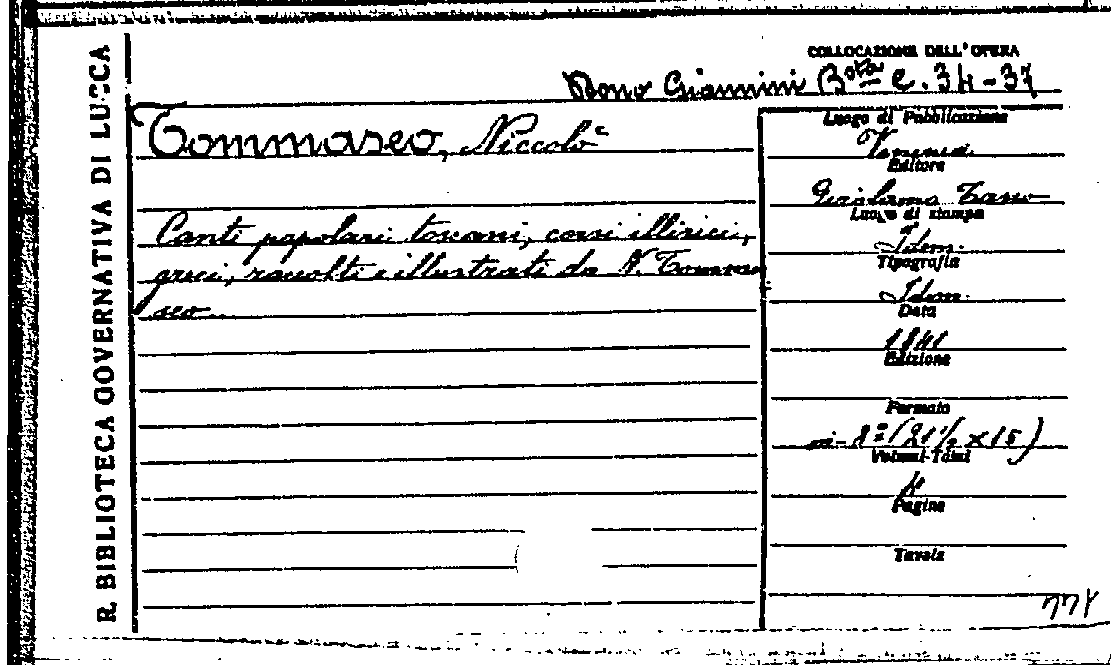 R. BIBLIOTECA GOVERNATIVA DI LUCCA
COLLOCAZIONE DELL'OPERA
Dono Giannini B.ota C. 34-37
Tommaseo, Niccolò
Canti popolari toscani, corsi illirici,
greci, raccolti e illustrati da N. Tomma
seo.
Luogo di Pubblicazione
Venezia
Editore
Girolamo Tasso
Luogo di stampa
Idem.
Tipografia
Idem.
Data
1841
Edizione
Formato
in-8º (21½ x 15)
Volumi-Tomi
4
Pagine
Tavole